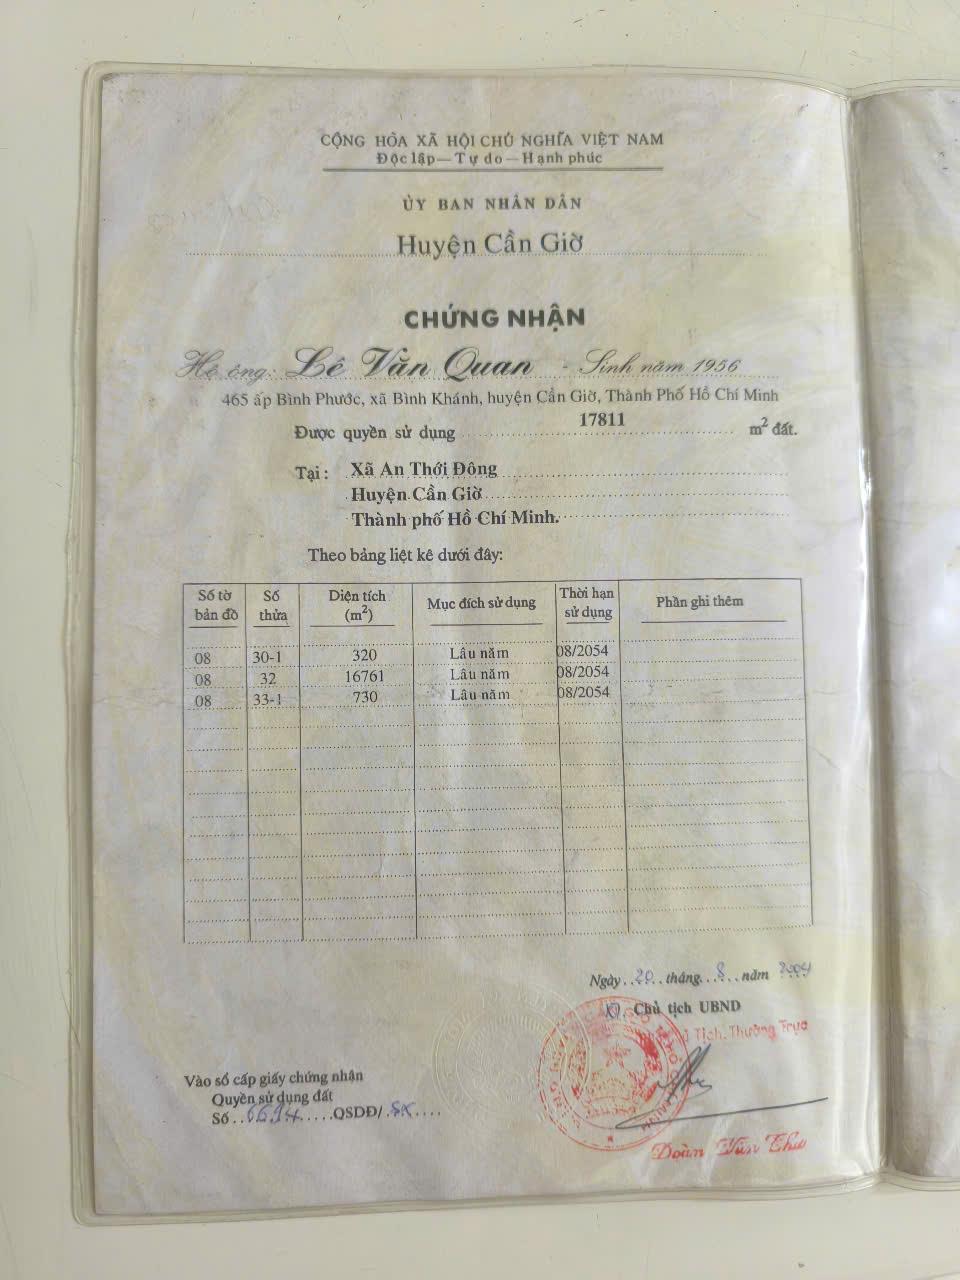 CỘNG HÒA XÃ HỘI CHỦ NGHĨA VIỆT NAM
Độc lập — Tự do — Hạnh phúc
ỦY BAN NHÂN DÂN
Huyện Cần Giờ
CHỨNG NHẬN
Hộ ông: Lê Văn Quan - Sinh năm 1956
465 ấp Bình Phước, xã Bình Khánh, huyện Cần Giờ, Thành Phố Hồ Chí Minh
Được quyền sử dụng 17811 m² đất.
Tại : Xã An Thới Đông
Huyện Cần Giờ
Thành phố Hồ Chí Minh.
Theo bảng liệt kê dưới đây:
Số tờ bản đồ Số thửa Diện tích (m²) Mục đích sử dụng Thời hạn sử dụng Phần ghi thêm
08 30-1 320 Lâu năm 08/2054
08 32 16761 Lâu năm 08/2054
08 33-1 730 Lâu năm 08/2054
Ngày 20 tháng 8 năm 2004
Chủ tịch UBND
Tịch Thường Trực
Vào sổ cấp giấy chứng nhận
Quyền sử dụng đất
Số QSDĐ/
Đoàn Văn Thu